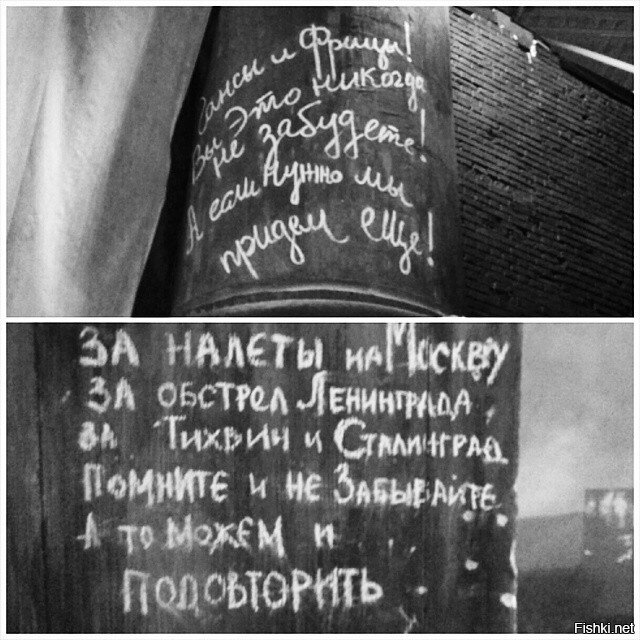 Гансы и Фрицы!
Вы это никогда
не забудете!
А если нужно мы
придем еще!
ЗА НАЛЕТЫ НА МОСКВУ
ЗА ОБСТРЕЛ ЛЕНИНГРАДА,
ЗА ТИХВИН И СТАЛИНГРАД
ПОМНИТЕ И НЕ ЗАБЫВАЙТЕ
А ТО МОЖЕМ И
ПОДОВТОРИТЬ
Fishki.net